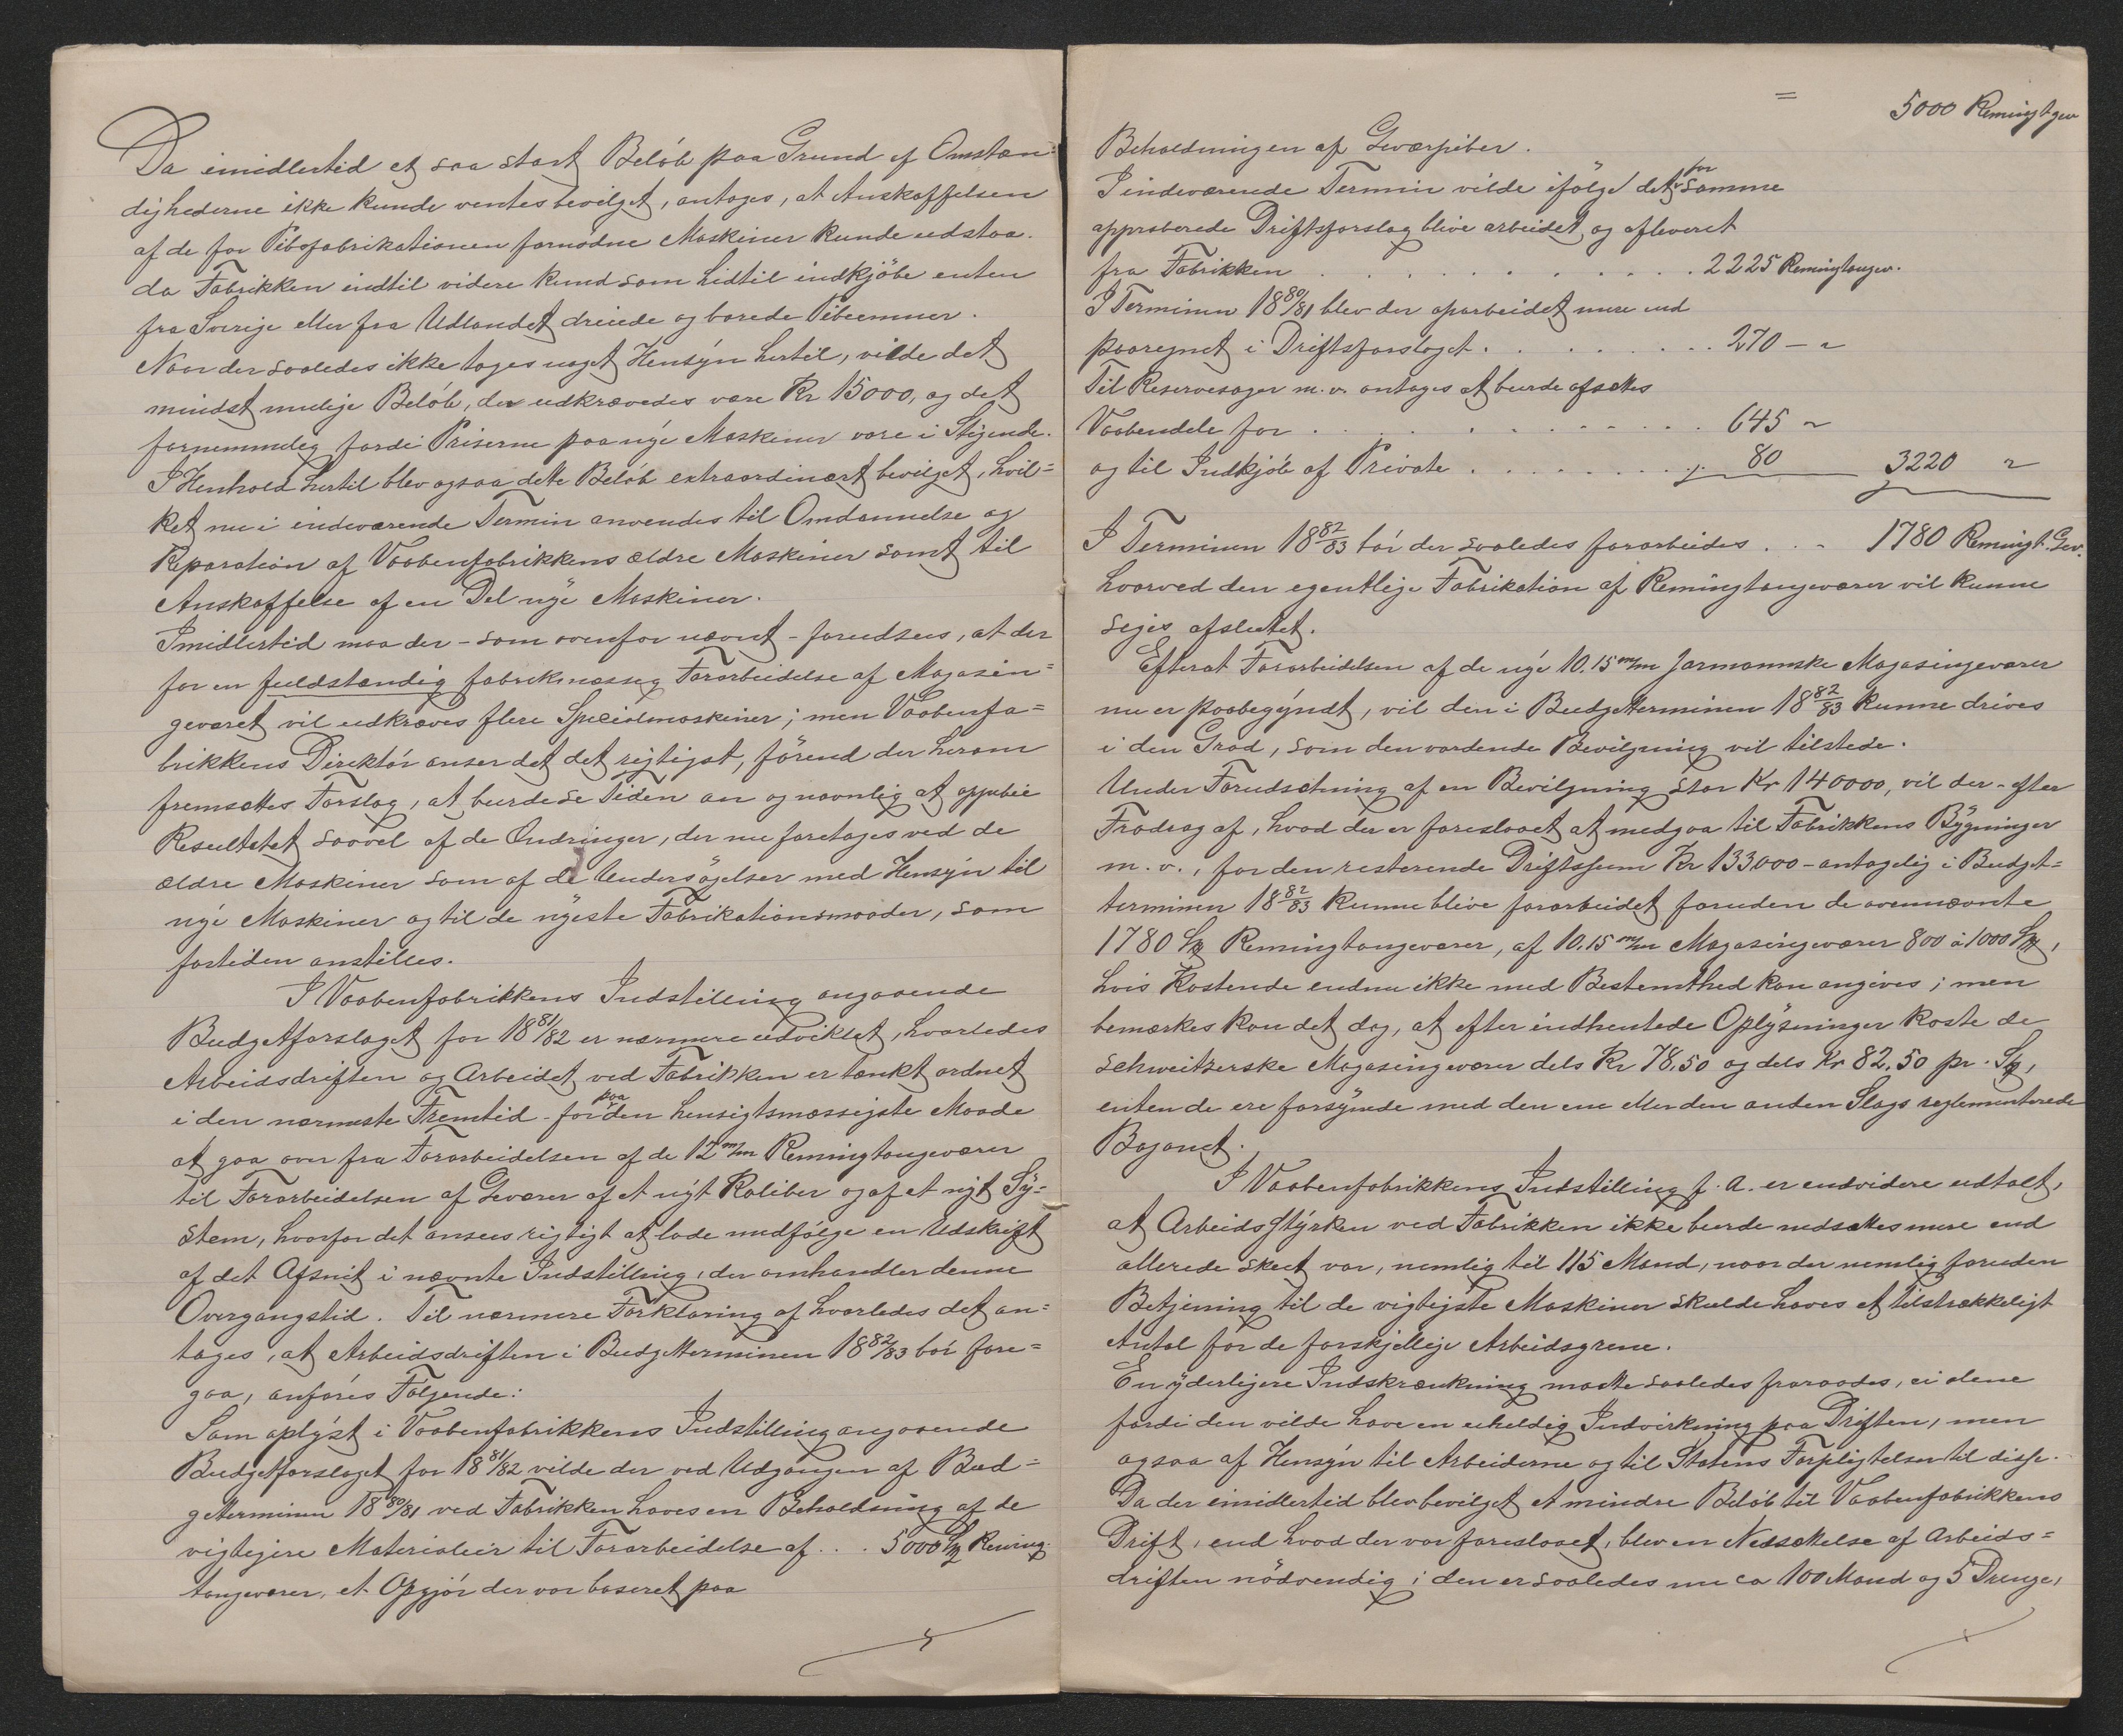 Da imidlertid et saa stort Beløb paa Grund af Omstæn=
dighederne ikke kunde ventes bevilget, antages, at Anskaffelsen
af de for Pibefabrikationen fornødne Maskiner kunde udstaa.
da Fabrikken indtil videre kund som hidtil indkjøbe enten
fra Sverige eller fra Udlandet dreiede og borede Pibeemner.
Naar der saaledes ikke toges noget Hensyn hertil, vilde det
mindst mulige Beløb, der udkrævedes være Kr 15000, og det
fornemmelig fordi Priserne paa nye Maskiner vare i Stigende.
I Henhold hertil blev ogsaa dette Beløb extraordinært bevilget, hvil=
ket nu i indeværende Termin anvendes til Omdannelse og
Reparation af Vaabenfabrikkens ældre Maskiner samt til
Anskaffelse af en Del nye Maskiner.
Imidlertid maa der - som ovenfor nævnt - forudsees, at der
for en fuldstændig fabrikmæssig Forarbeidelse af Magasin=
geværet vil udkræves flere Specialmaskiner; men Vaabenfa=
brikkens Direktör anser det det rigtigst, förend der herom
fremsættes Forslag, at burde se Tiden an og navnlig at oppebie
Resultatet saavel af de Ændringer, der nu foretages ved de
ældre Maskiner som af de Undersøgelser med Hensyn til
nye Maskiner og til de nyeste Fabrikationsmaader, som
fortiden anstilles.
I Vaabenfabrikkens Indstilling angaaende
Budgetforslaget for 18 81/82 er nærmere udviklet, hvorledes
Arbeidsdriften og Arbeidet ved Fabrikken er tænkt ordnet
i den nærmeste Fremtid - for paa den hensigtsmæssigste Maade
at gaa over fra Forarbeidelsen af de 12 m/m Remingtongeværer
til Forarbeidelsen af Geværer af et nyt Kaliber og af et nyt Sy=
stem, hvorfor det ansees rigtigt at lade medfølge en Udskrift
af det Afsnit i nævnte Indstilling, der omhandler denne
Overgangstid. Til nærmere Forklaring af hvorledes det an=
tages, at Arbeidsdriften i Budgetterminen 18 82/83 bör fore=
gaa, anføres Følgende:
Som oplyst i Vaabenfabrikkens Indstilling angaaende
Budgetforslaget for 18 81/82 vilde der ved Udgangen af Bud=
getterminen 18 80/81 ved Fabrikken haves en Beholdning af de
vigtigere Materialier til Forarbeidelse af . . . 5000 Stk Reming-
tongeværer, et Opgjör der var baseret paa
5000 Remingtgev
Beholdningen af Geværpiber.
I indeværende Termin vilde ifölge det for samme
approberede Driftsforslag blive arbeidet og afleveret
fra Fabrikken . . . . . . . . . . . 2225 Remingtongev.
I Terminen 18 80/81 blev der oparbeidet mere end
paaregnet i Driftsforslaget . . . . . . . . 270 — "
Til Reservesager m. v. antages at burde afsættes
Vaabendele for . . . . . . . . . . 645 "
og til Indkjöb af Private . . . . . . . . 80 3220 "
I Terminen 18 82/83 bör der saaledes forarbeides . . - 1780 Remingt. Gev.
hvorved den egentlige Fabrikation af Remingtongeværer vil kunne
siges afsluttet.
Efterat Forarbeidelsen af de nye 10.15 m/m Jarmannske Magasingeværer
nu er paabegyndt, vil den i Budgetterminen 18 82/83 kunne drives
i den Grad, som den vordende Bevilgning vil tilstede.
Under Forudsætning af en Bevilgning stor Kr 140000, vil der - efter
Fradrag af, hvad der er foreslaaet at medgaa til Fabrikkens Bygninger
m. v., for den resterende Driftssum Kr 133000 - antagelig i Budget=
terminen 18 82/83 kunne blive forarbeidet foruden de ovennævnte
1780 Stk Remingtongeværer, af 10.15 m/m Magasingeværer 800 à 1000 Stk,
hvis Kostende endnu ikke med Bestemthed kan angives; men
bemærkes kan det dog, at efter indhentede Oplysninger koste de
schweitzerske Magasingeværer dels Kr 78,50 og dels Kr 82,50 pr. Stk,
enten de ere forsynede med den ene eller den anden Slags reglementerede
Bajonet.
I Vaabenfabrikkens Indstilling f. A. er endvidere udtalt,
at Arbeidsstyrken ved Fabrikken ikke burde nedsættes mere end
allerede skeet var, nemlig til 115 Mand, naar der nemlig foruden
Betjening til de vigtigste Maskiner skulde haves et tilstrækkeligt
Antal for de forskjellige Arbeidsgrene.
En yderligere Indskrænkning maatte saaledes fraraades, ei alene
fordi den vilde have en uheldig Indvirkning paa Driften, men
ogsaa af Hensyn til Arbeiderne og til Statens Forpligtelser til disse.
Da der imidlertid blev bevilget et mindre Beløb til Vaabenfabrikkens
Drift, end hvad der var foreslaaet, blev en Nedsættelse af Arbeids=
driften nödvendig; den er saaledes nu ca 100 Mand og 5 Drenge,